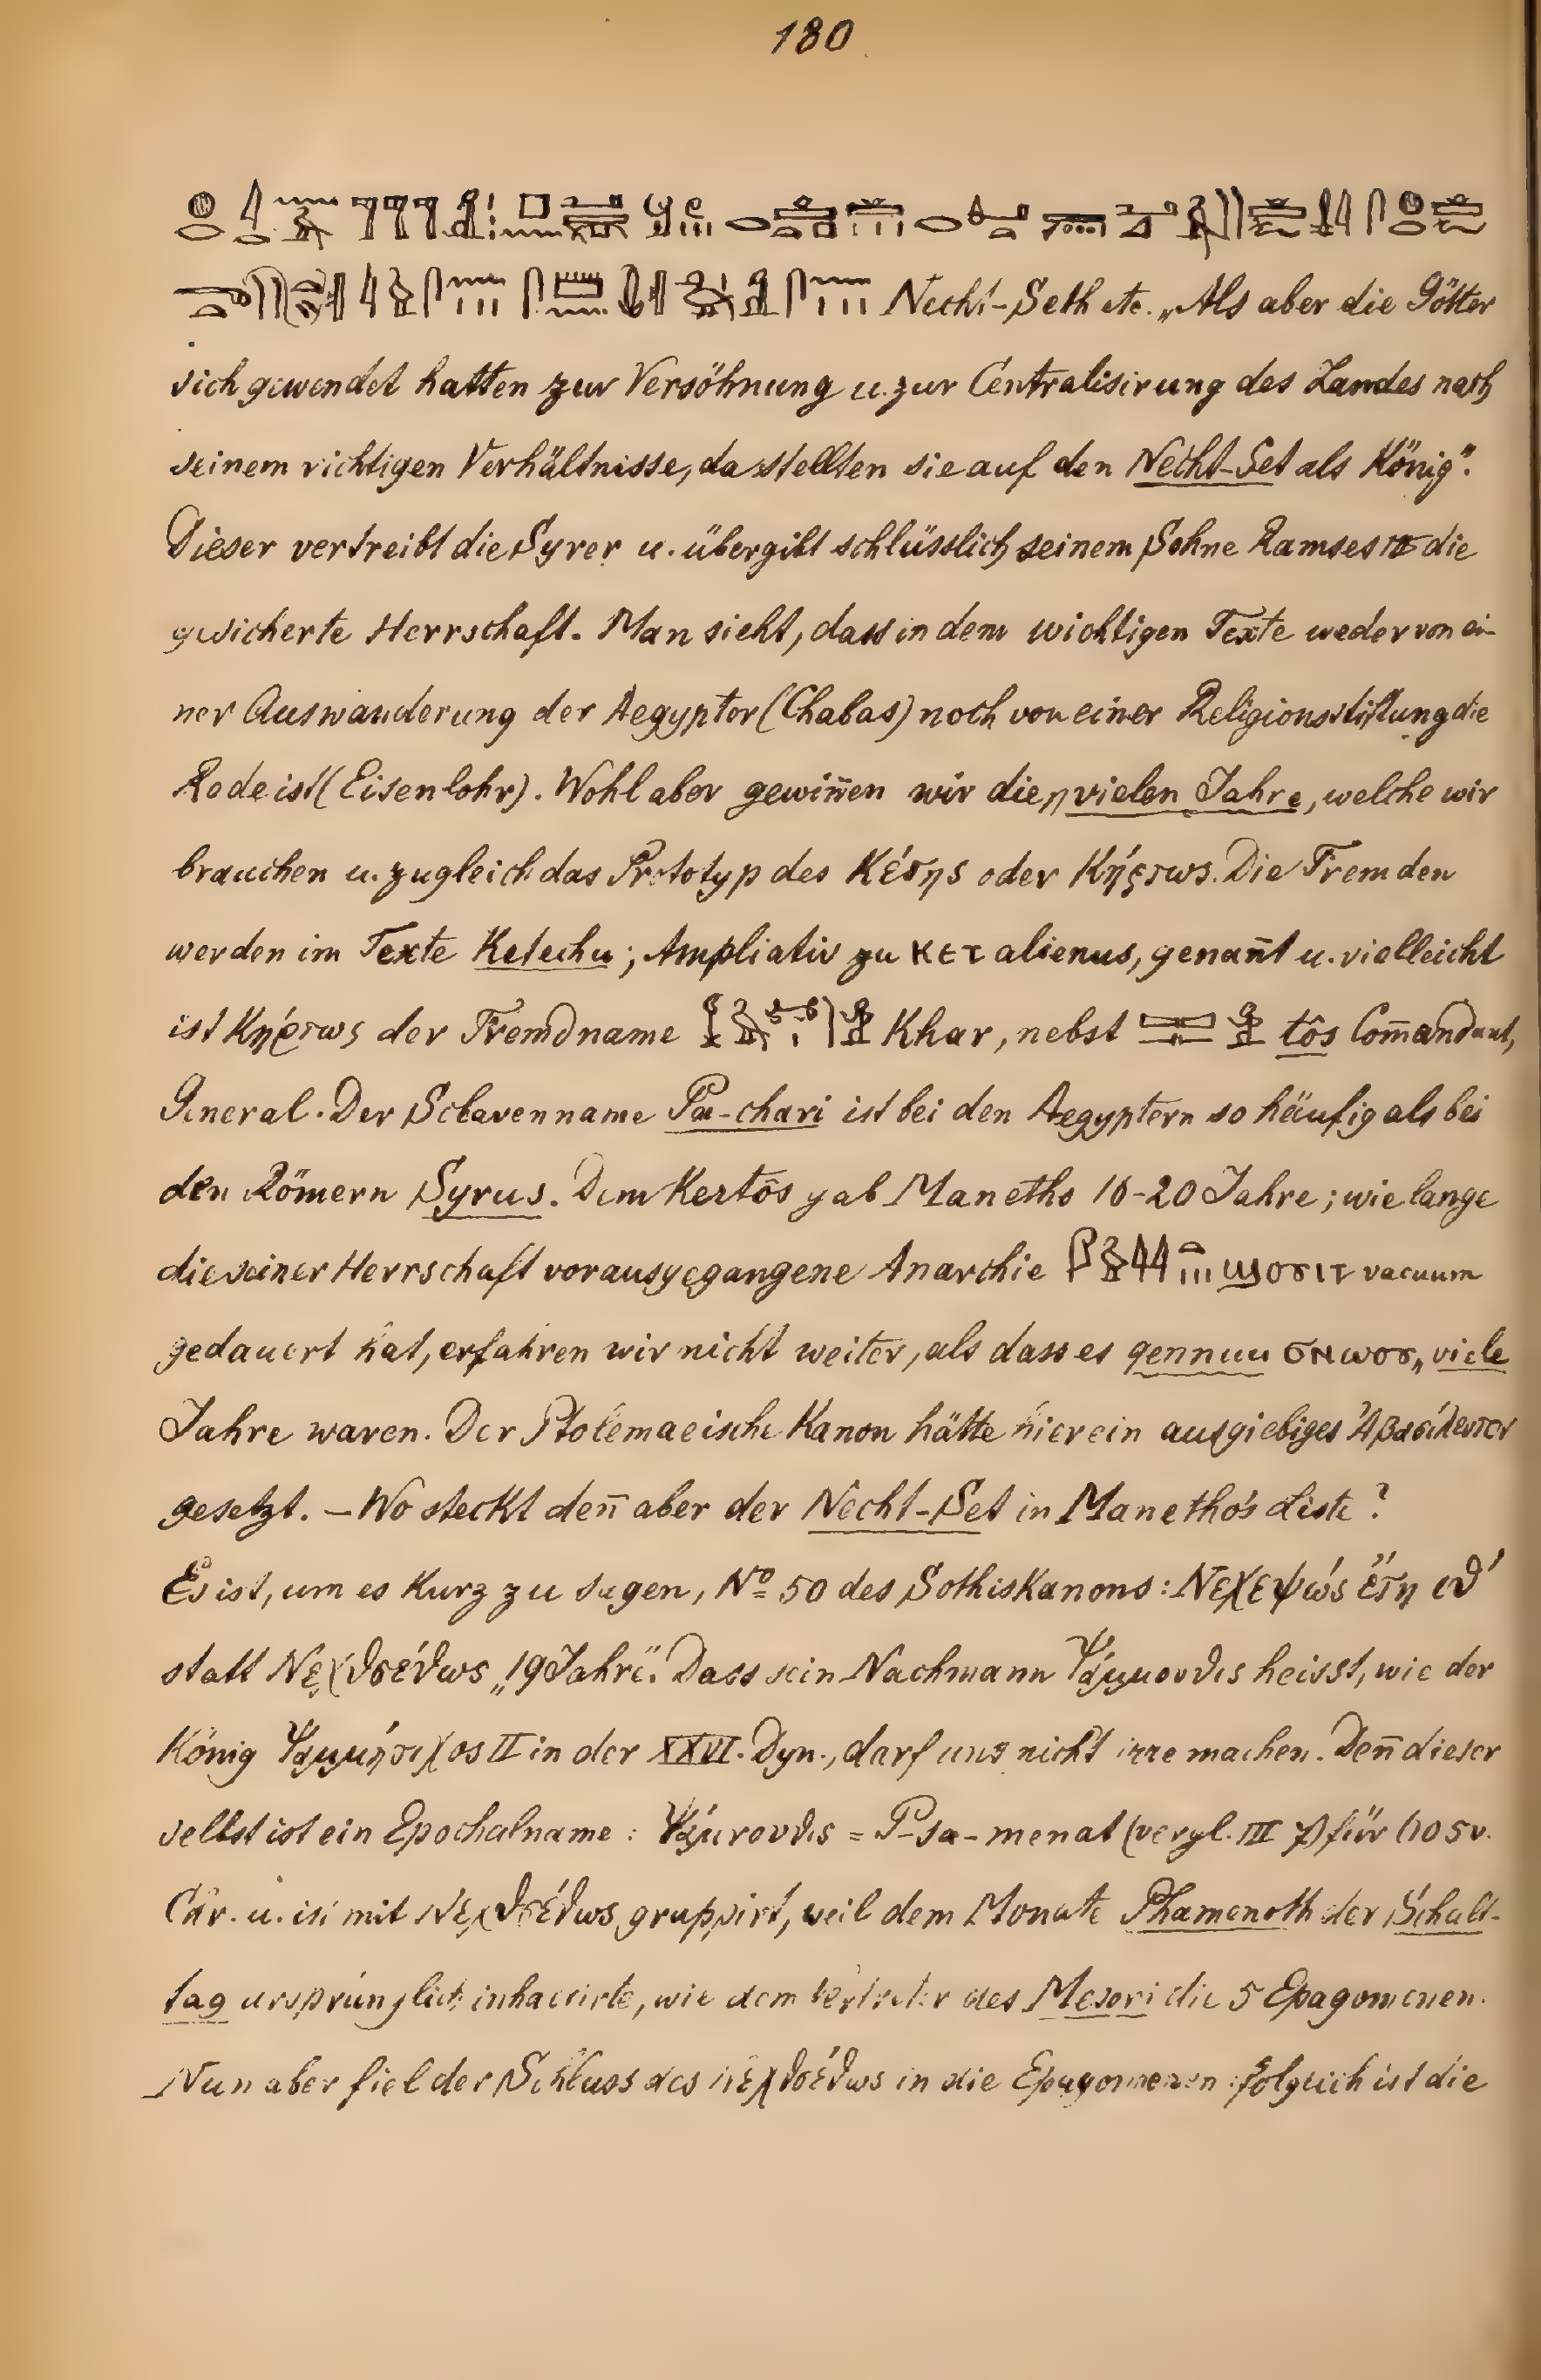 180
Necht-Seth etc. „Als aber die Götter
sich gewendet hatten zur Versöhnung u. zur Centralisirung des Landes nach
seinem richtigen Verhältnisse, da stellten sie auf den Necht-Set als König".
Dieser vertreibt die Syrer u. übergibt schlüsslich seinem Sohne Ramses III die
gesicherte Herrschaft. Man sieht, dass in dem wichtigen Texte weder von ei-
ner Auswanderung der Aegypter (Chabas) noch von einer Religionsstiftung die
Rede ist (Eisenlohr). Wohl aber gewin̄en wir die „vielen Jahre, welche wir
brauchen u. zugleich das Prototyp des Κέτης oder Κήρτως. Die Fremden
werden im Texte Ketechu; Ampliativ zu ⲕⲉⲧ alienus, genan̄t u. vielleicht
ist Κήρτως der Fremdname Khar, nebst tôs Com̄andant,
General. Der Sclavenname Pa-chari ist bei den Aegyptern so häufig als bei
den Römern Syrus. Dem Kertôs gab Manetho 16-20 Jahre; wie lange
die seiner Herrschaft vorausgegangene Anarchie ϣⲟⲩⲓⲧ vacuum
gedauert hat, erfahren wir nicht weiter, als dass es gennuu „viele
Jahre waren. Der Ptolemaeische Kanon hätte hier ein ausgiebiges Ἀβασίλευτον
gesetzt. – Wo steckt den̄ aber der Necht-Set in Manetho's Liste?
Es ist, um es kurz zu sagen, Nº 50 des Sothiskanons: Νεχεψώς ἔτη ιθ'
statt Νεχθσέθως „19 Jahre". Dass sein Nachmann Ψάμμουθις heisst, wie der
König Ψαμμήτιχος II in der XXVI. Dyn., darf uns nicht irre machen. Den̄ dieser
selbst ist ein Epochalname: Ψάμουθις = P-sa-menat (vergl. III 7) für 605 v.
Chr. u. ist mit Νεχθσέθως gruppirt, weil dem Monate Phamenoth der Schalt-
tag ursprünglich inhaerirte, wie dem Vertreter des Mesori die 5 Epagomenen.
Nun aber fiel der Schluss des Νεχθσέθως in die Epagomenen: folglich ist die